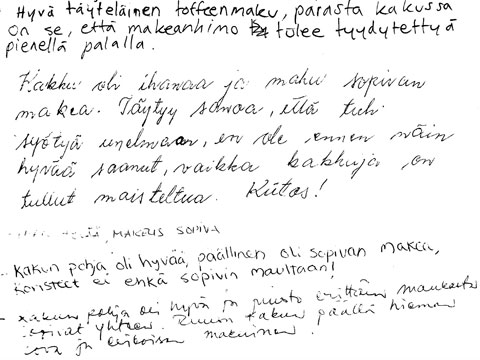 Hyvä täyteläinen toffeenmaku, parasta kakussa
on se, että makeanhimo tulee tyydytettyä
pienellä palalla.
Kakku oli ihanaa ja maku sopivan
makea. Täytyy sanoa, että tuli
syötyä unelmaa, en ole ennen näin
hyvää saanut, vaikka kakkuja on
tullut maisteltua. Kiitos!
MAKEUS SOPIVA
Kakun pohja oli hyvää, päällinen oli sopivan makea,
koristeet ei ehkä sopivin maultaan!
- kakun pohja oli hyvä ja juusto erittäin maukasta
sopivat yhteen. kakun päällä hieman
ja erikoisen makuinen.